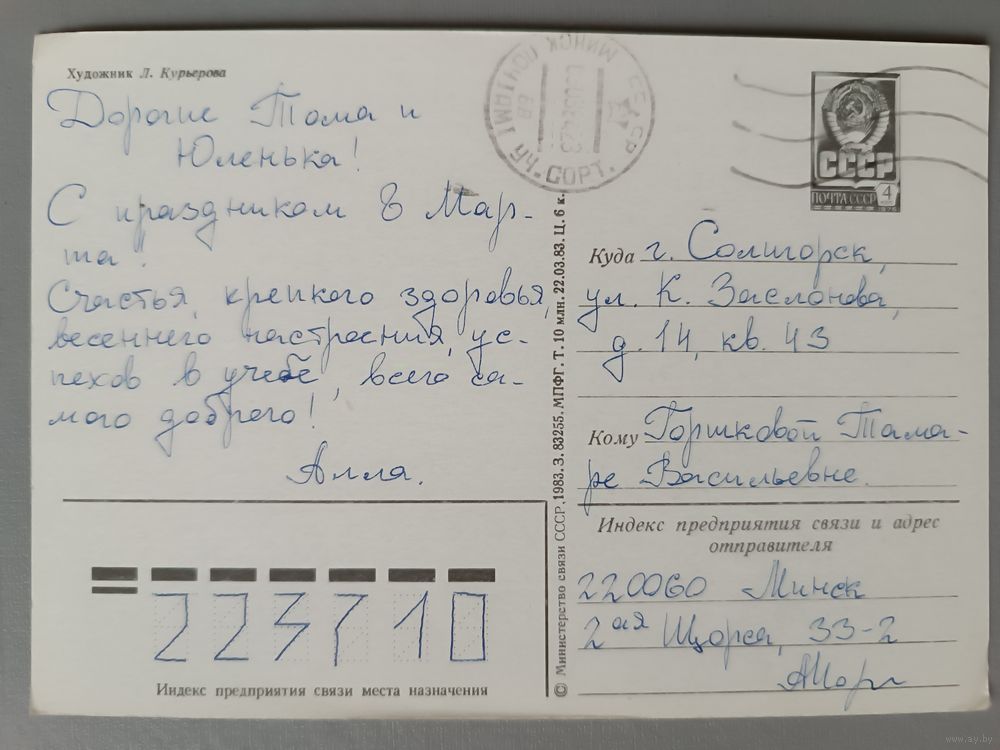 Художник Л. Курьерова
Дорогие Тома и
Юленька!
С праздником 8 Мар-
та!
Счастья, крепкого здоровья,
весеннего настроения, ус-
пехов в учебе, всего са-
мого доброго!
Алла.
Индекс предприятия связи места назначения
223710
© Министерство связи СССР, 1983. З. 83255. МПФГ. Т. 10 млн. 22.03.83. Ц. 6 к.
МИНСК ПОЧТАМТ
СССР
УЧ. СОРТ.
СССР
ПОЧТА СССР 4
1976
Куда г. Солигорск,
ул. К. Заслонова,
д. 14, кв. 43
Кому Горшковой Тама-
ре Васильевне.
Индекс предприятия связи и адрес
отправителя
220060 Минск
2ая Щорса, 33-2
www.ay.by